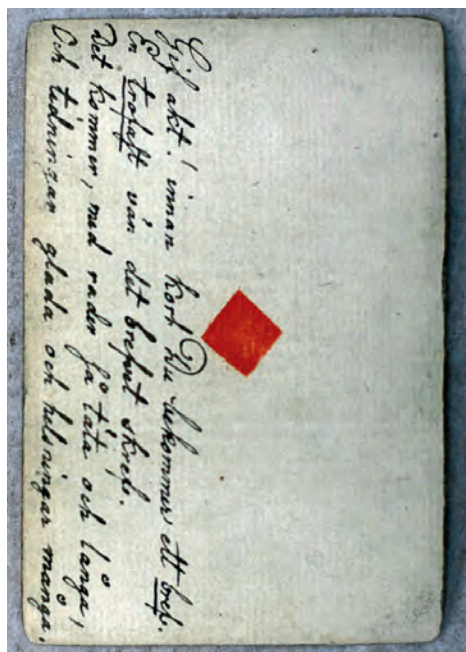 Gif akt! innan kort Du bekommer ett bref.
En trofast vän det brefvet skref.
Det kommer, med rader så täta och långa,
Och tidningar glada och helsningar många.